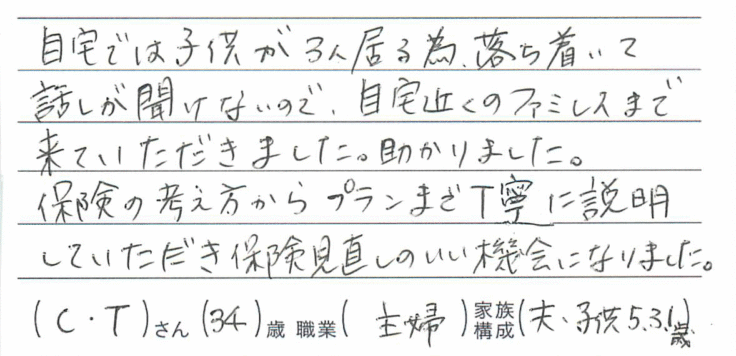 自宅では子供が3人居る為、落ち着いて
話しが聞けないので、自宅近くのファミレスまで
来ていただきました。助かりました。
保険の考え方からプランまで丁寧に説明
していただき保険見直しのいい機会になりました。
(C・T)さん(34)歳 職業(主婦)家族構成(夫、子供5.3.1)歳